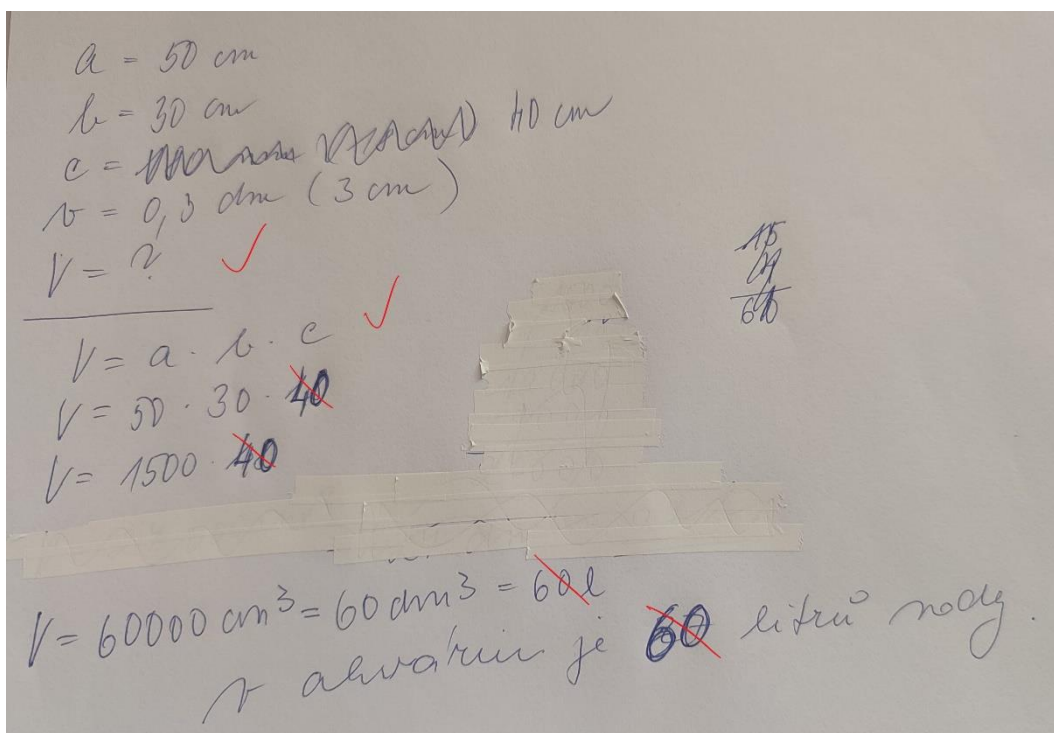 a = 50 cm
b = 30 cm
c = 40 cm
v = 0,3 dm (3 cm)
V = ?
V = a · b · c
V = 50 · 30 · 40
V = 1500 · 40
V = 60000 cm³ = 60 dm³ = 60 l
v akváriu je 60 litrů vody.